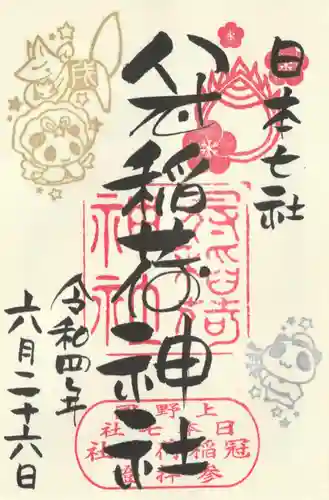 日本七社
冠稲荷神社
令和四年
六月二十六日
冠稲荷
神社
上野
日本七社
冠稲荷
参拝